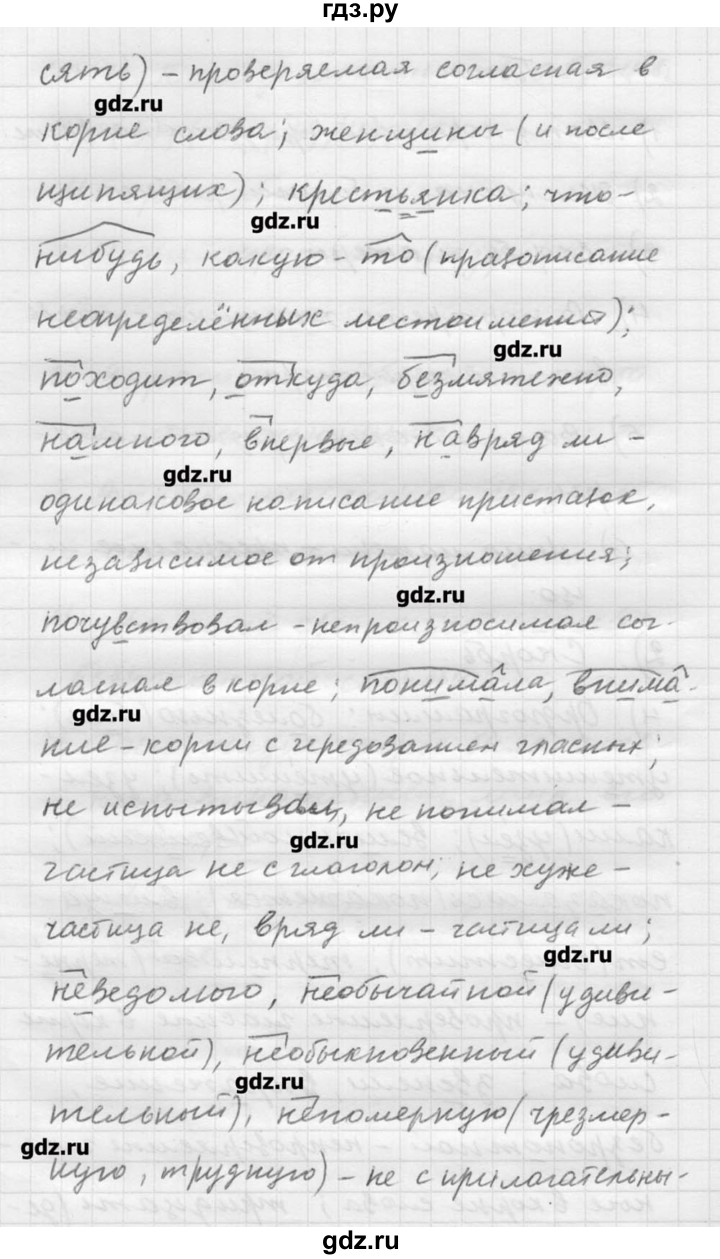 гдз.ру
сять) – проверяемая согласная в
gdz.ru
корне слова; женщины (и после
щипящих); крестьянка; что-
gdz.ru
нибудь, какую-то (правописание
неопределённых местоимений);
gdz.ru
походит, откуда, безмятежно,
намного, впервые, навряд ли –
gdz.ru
одинаковое написание приставок,
независимое от произношения;
gdz.ru
почувствовал – непроизносимая сог-
ласная в корне; понимала, внима-
gdz.ru
ние – корни с чередованием гласных;
не испытывал, не понимал –
gdz.ru
частица не с глаголом, не хуже –
частица не, вряд ли – частица ли;
gdz.ru
неведомого, необычайной (удиви-
тельной), необыкновенный (удиви-
gdz.ru
тельный), непомерную (чрезмер-
gdz.ru
ную, трудную) – не с прилагательны-
gdz.ru